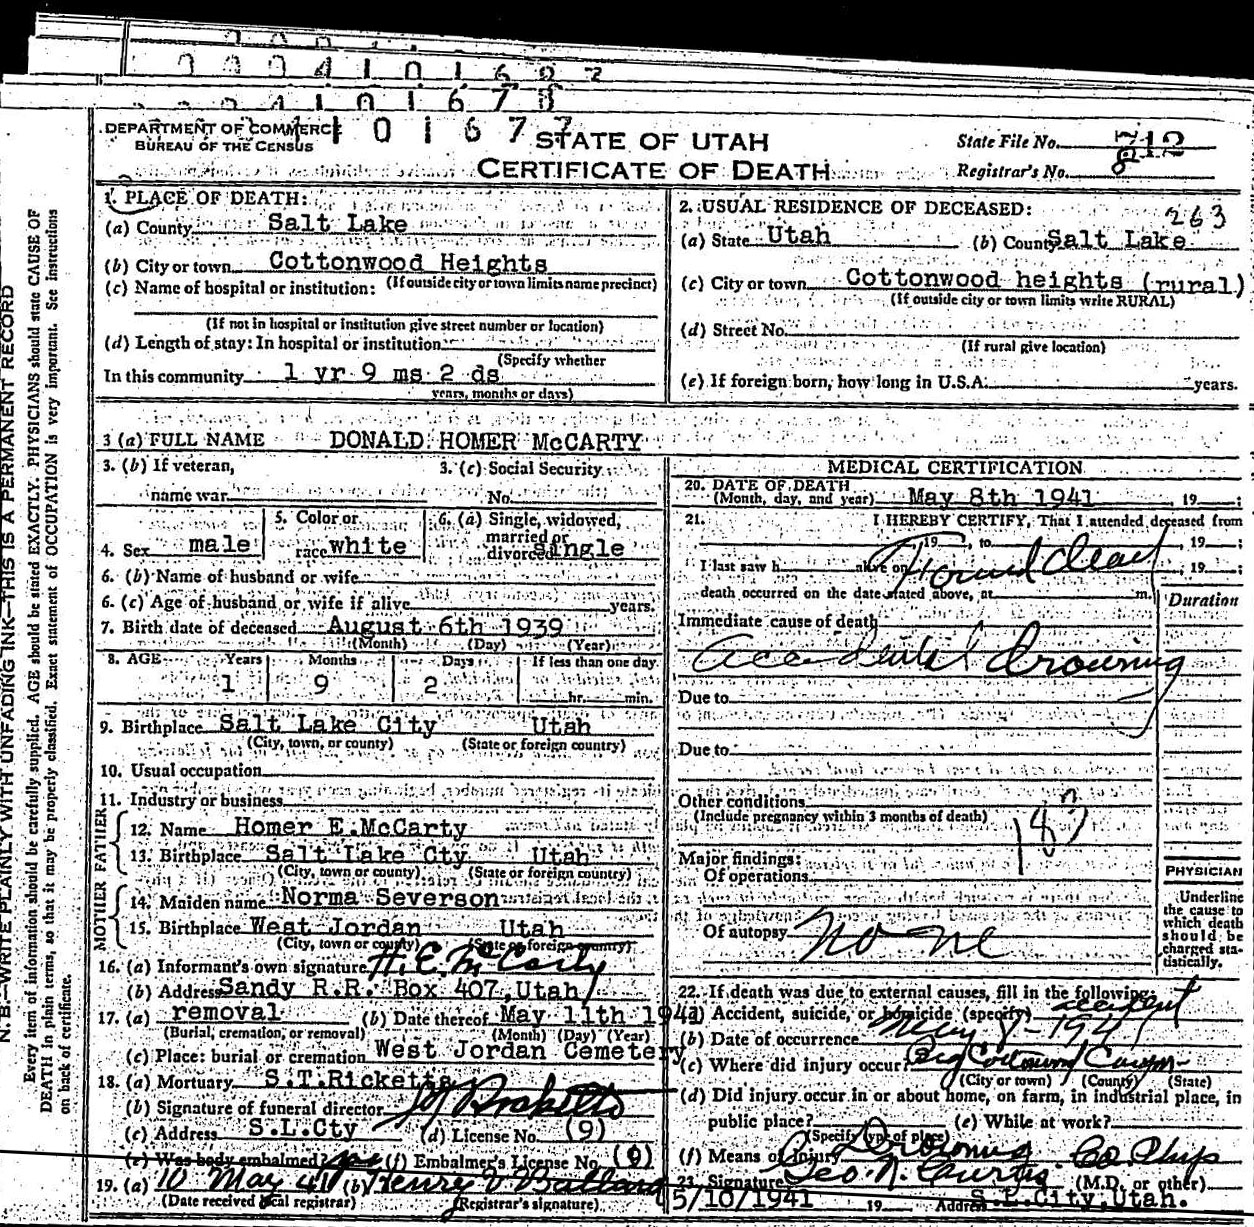 4101678
101677
DEPARTMENT OF COMMERCE
BUREAU OF THE CENSUS
STATE OF UTAH
CERTIFICATE OF DEATH
State File No. 712
Registrar's No. 8
263
1. PLACE OF DEATH:
(a) County Salt Lake
(b) City or town Cottonwood Heights
(If outside city or town limits name precinct)
(c) Name of hospital or institution:
(If not in hospital or institution give street number or location)
(d) Length of stay: In hospital or institution
(Specify whether
In this community 1 yr 9 ms 2 ds
years, months or days)
2. USUAL RESIDENCE OF DECEASED:
(a) State Utah (b) County Salt Lake
(c) City or town Cottonwood heights (rural)
(If outside city or town limits write RURAL)
(d) Street No.
(If rural give location)
(e) If foreign born, how long in U.S.A. years.
3 (a) FULL NAME DONALD HOMER McCARTY
3. (b) If veteran, 3. (c) Social Security
name war No.
4. Sex male 5. Color or race white 6. (a) Single, widowed, married or divorced single
6. (b) Name of husband or wife
6. (c) Age of husband or wife if alive years.
7. Birth date of deceased August 6th 1939
(Month) (Day) (Year)
8. AGE Years Months Days If less than one day
1 9 2 hr. min.
9. Birthplace Salt Lake City Utah
(City, town, or county) (State or foreign country)
10. Usual occupation
11. Industry or business
FATHER
12. Name Homer E.McCarty
13. Birthplace Salt Lake Cty Utah
(City, town or county) (State or foreign country)
MOTHER
14. Maiden name Norma Severson
15. Birthplace West Jordan Utah
(City, town or county) (State or foreign country)
16. (a) Informant's own signature H.E. McCarty
(b) Address Sandy R.R. Box 407,Utah
17. (a) removal (b) Date thereof May 11th 1941
(Burial, cremation, or removal) (Month) (Day) (Year)
(c) Place: burial or cremation West Jordan Cemetery
18. (a) Mortuary S.T.Ricketts
(b) Signature of funeral director
(c) Address S.L.Cty (d) License No. (9)
(e) Was body embalmed? (f) Embalmer's License No.
19. (a) 10 May 41 (b) Henry Ballard
(Date received local registrar) (Registrar's signature)
MEDICAL CERTIFICATION
20. DATE OF DEATH
(Month, day, and year) May 8th 1941, 19 ;
21. I HEREBY CERTIFY, That I attended deceased from
19 , to , 19 ;
I last saw h alive on Found dead , 19 ;
death occurred on the date stated above, at m.
Duration
Immediate cause of death
Accidental Drowning
Due to
Due to
Other conditions
(Include pregnancy within 3 months of death)
183
Major findings:
Of operations
Of autopsy None
PHYSICIAN
Underline
the cause to
which death
should be
charged sta-
tistically.
22. If death was due to external causes, fill in the following:
(a) Accident, suicide, or homicide (specify) accident
(b) Date of occurrence May 8-1941
(c) Where did injury occur? Big Cottonwood Canyon
(City or town) (County) (State)
(d) Did injury occur in or about home, on farm, in industrial place, in
public place? (e) While at work?
(Specify type of place)
(f) Means of Injury Drowning
23. Signature Geo. N. Curtis Co. Phys
(M.D. or other)
5/10/1941 19 Address S.L.City,Utah.
N. B.—WRITE PLAINLY WITH UNFADING INK—THIS IS A PERMANENT RECORD
Every item of information should be carefully supplied. AGE should be stated EXACTLY. PHYSICIANS should state CAUSE OF
DEATH in plain terms, so that it may be properly classified. Exact statement of OCCUPATION is very important. See instructions
on back of certificate.